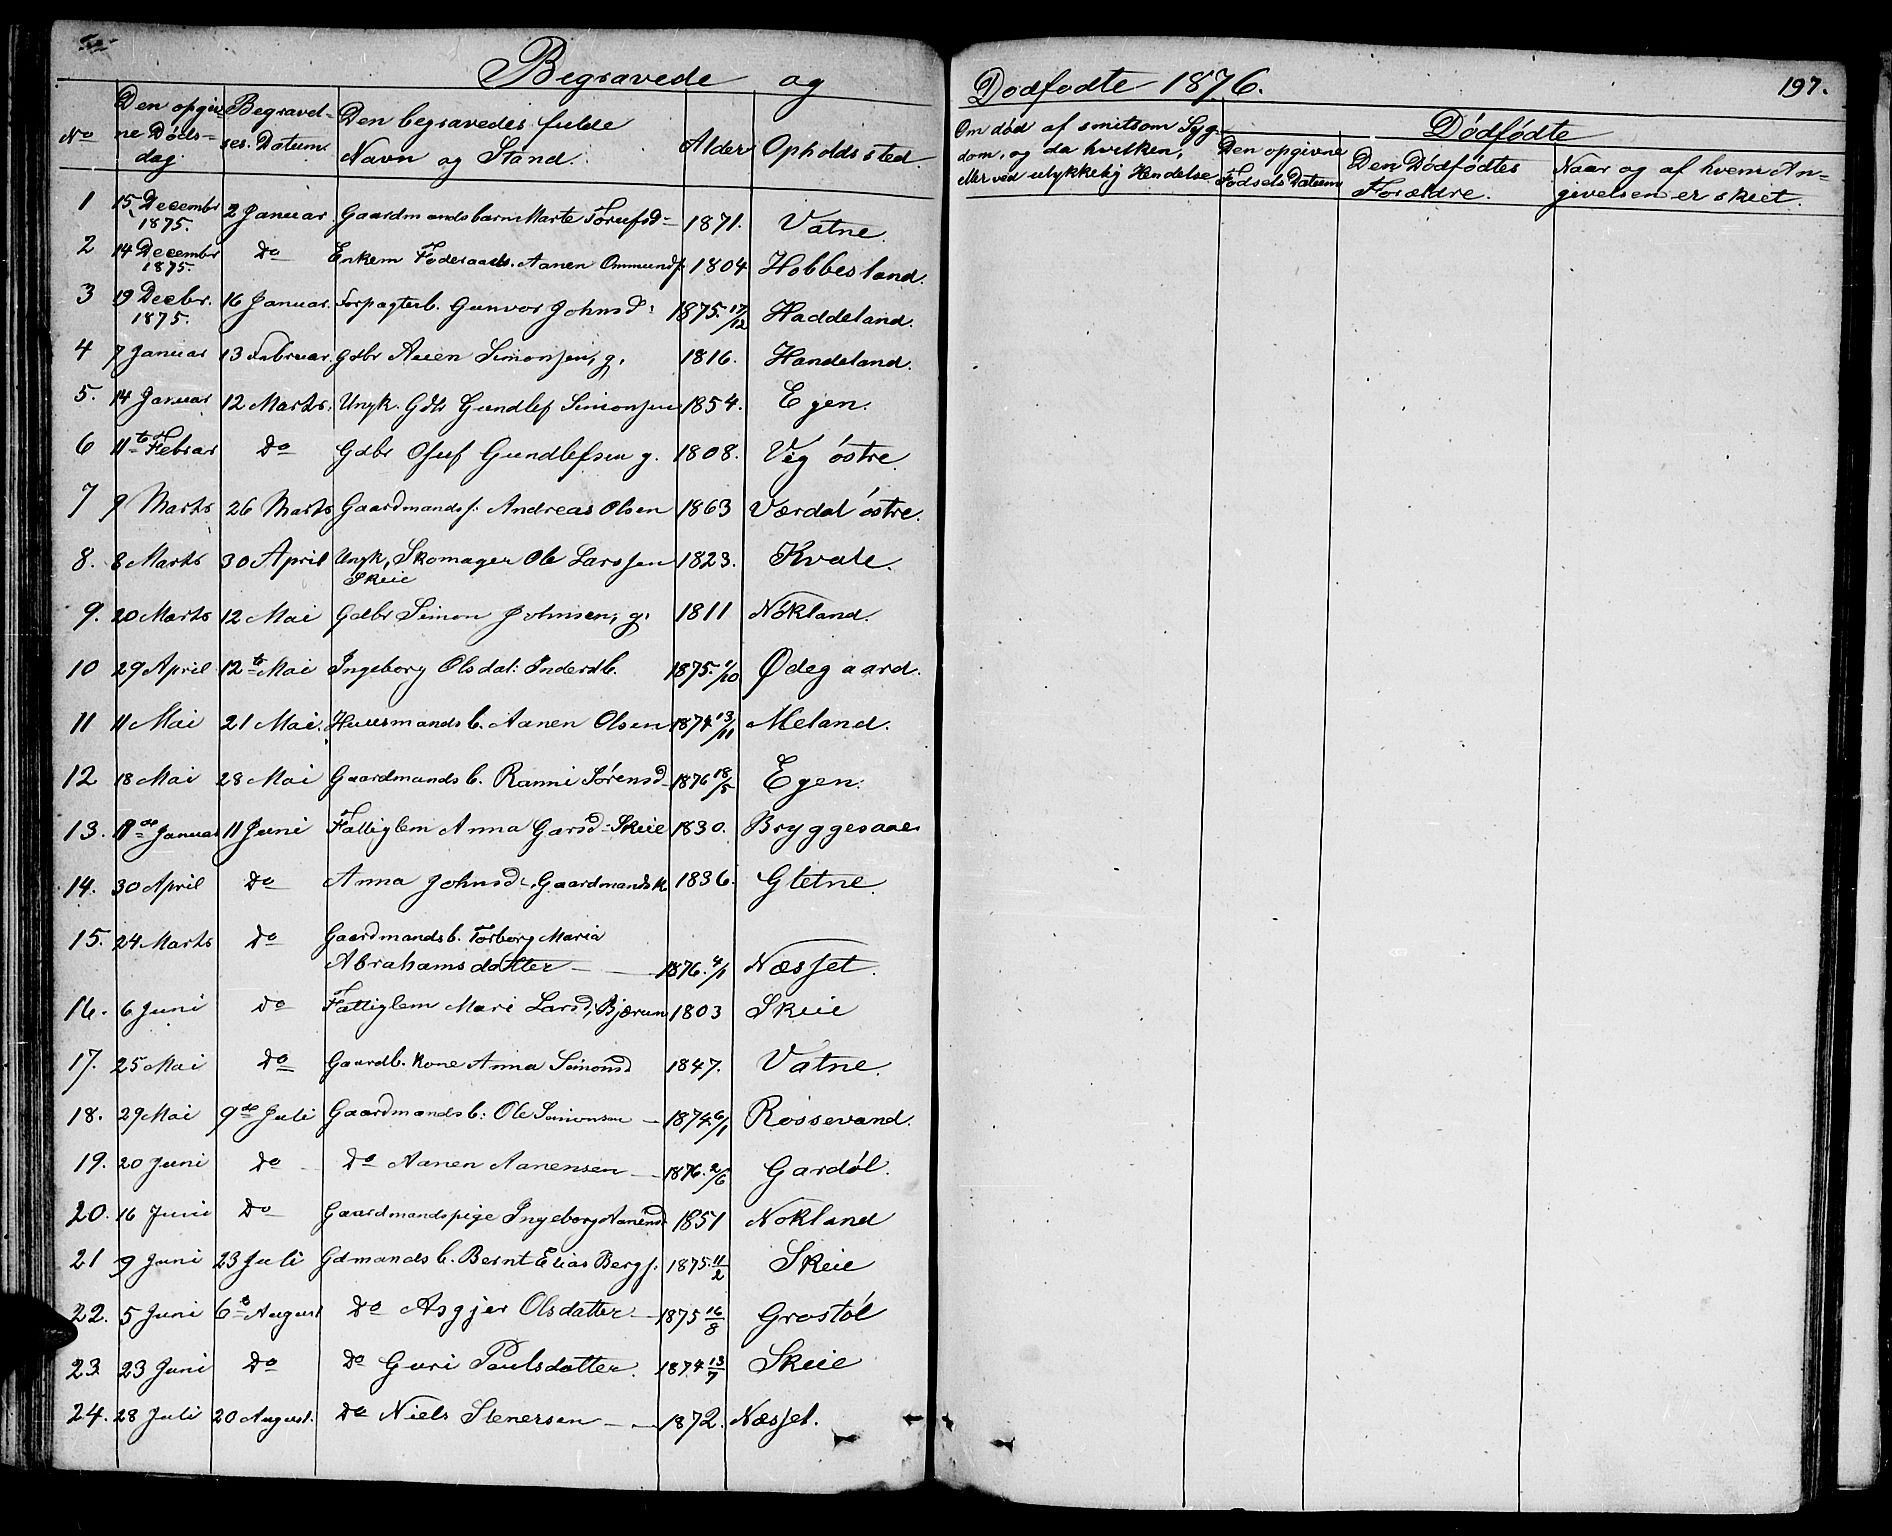 Begravede og
Dødfødte 1876.
197.
No
Den opgivne Døds-dag.
Begravel-ses. Datum.
Den begravedes fulde Navn og Stand.
Alder
Opholdssted.
Om død af smitsom Sygdom, og da hvilken, eller ved ulykkelig Hendelse
Dødfødte
Den opgivne Fødsels Datum
Den Dødfødtes Forældre.
Naar og af hvem An-givelsen er skeet.
1 15 Decembr 1875. 2 Januar Gaardmandsbarn Marte 1871. Vatne.
2 14 Decembr 1875. Do Enkem Føderaads. Aanen Ommunds. 1804 Hobbesland.
3 19 Decbr. 1875. 16 Januar. Forpagterb. Gunvor Johnsd: 1875. 17/12 Haddeland.
4 7 Januar 13 Februar. Gdbr Simonsen, g. 1816. Handeland.
5. 14 Januar 12 Marts. Ungk. Gdbr Gundlef Simonsen 1854. Egen.
6 11te Februar Do Gdbr Gundlefsen g. 1808. Vig østre
7 9 Marts 26 Marts Gaardmands s: Andreas Olsen 1863 Værdal østre.
8. 8 Marts 30 April Ungk. Skomager Ole Larssen Skeie 1823. Kvale.
9. 20 Marts 12 Mai Gdbr Simon Johnsen, g. 1811 Nökland.
10 29 April 12te Mai Ingeborg Olsdat: Inderstb. 1875. 1/10 Ødegaard.
11 11 Mai 21 Mai. Huusmands b. Aanen Olsen 1874 13/11 Meland.
12 18 Mai 28 Mai Gaardmands b. Ranni Sørensd 1876 18/5 Egen.
13. Januar 11 Juni Fattiglem Anna Garsd: Skeie 1830. Bryggesaae
14. 30 April Do Anna Johnsd: Gaardmands k. 1836. Gletne.
15. 24 Marts Do Gaardmands b. Torborg Maria
Abrahamsdatter — 1876. 4/1 Næsset.
16. 6 Juni Do Fattiglem Mari Larsd; Bjærum 1803 Skeie
17. 25 Mai Do Gaardb. Kone Anna Simonsd 1847. Vatne.
18. 29 Mai 9de Juli Gaardmands b: Ole Simonsen — 1874 6/1 Røssevand.
19. 20 Juni Do Do Aanen Aanensen — 1876. 2/6 Gardøl.
20. 16 Juni Do Gaardmandspige Ingeborg Aanensd 1851 Nökland
21 9 Juni 23 Juli Gdmands b. Bernt Elias Bergs. 1875. 11/2 Skeie
22. 5 Juni 6te August Do Asgjer Olsdatter — 1875 16/8 Grostøl
23 23 Juni Do Do Guri Paulsdatter. 1874 13/7 Skeie
24. 28 Juli 20 August. Do Niels Stenersen — 1872. Næsset.